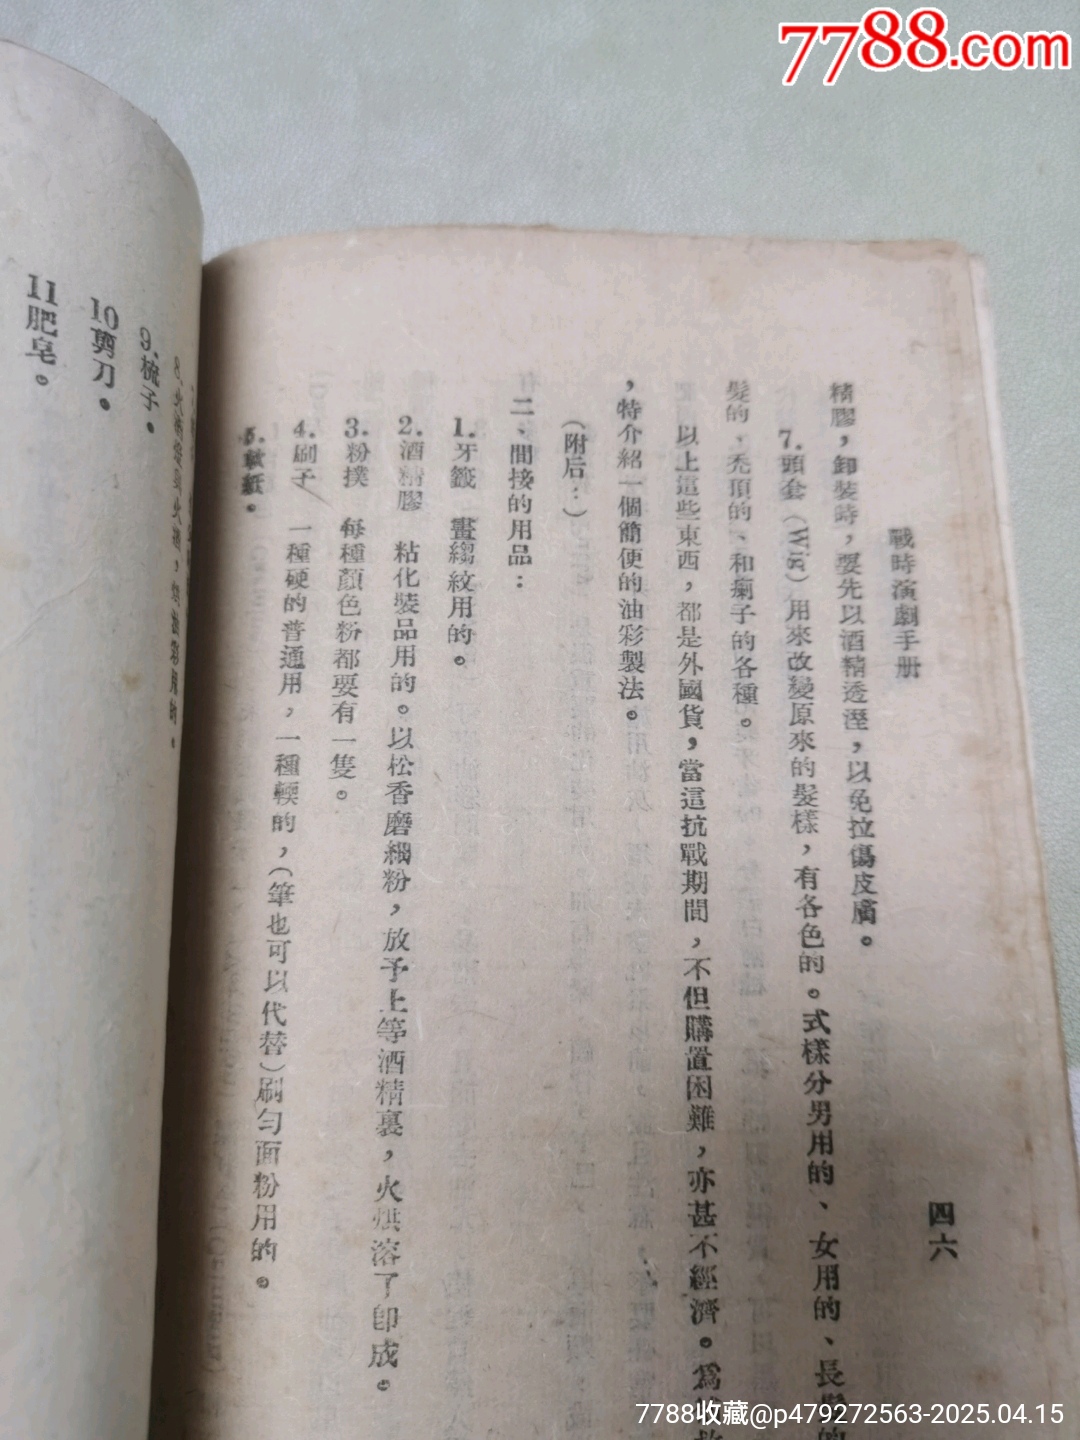 7788.com
戰時演劇手册
四六
精膠，卸裝時，要先以酒精透溼，以免拉傷皮膚。
7.頭套（Wig）用來改變原來的髮樣，有各色的。式樣分男用的、女用的、長
髮的、禿頂的、和瘌子的各種。
以上這些東西，都是外國貨，當這抗戰期間，不但購置困難，亦甚不經濟。爲
，特介紹一個簡便的油彩製法。
（附后：）
二、間接的用品：
1.牙籤 畫縐紋用的。
2.酒精膠 粘化裝品用的。以松香磨細粉，放予上等酒精裏，火烘溶了卽成。
3.粉撲 每種顏色粉都要有一隻。
4.刷子 一種硬的普通用，一種輭的，（筆也可以代替）刷勻面粉用的。
5.軟紙。
8.火
9.梳子。
10剪刀。
11肥皂。
7788收藏@p479272563-2025.04.15